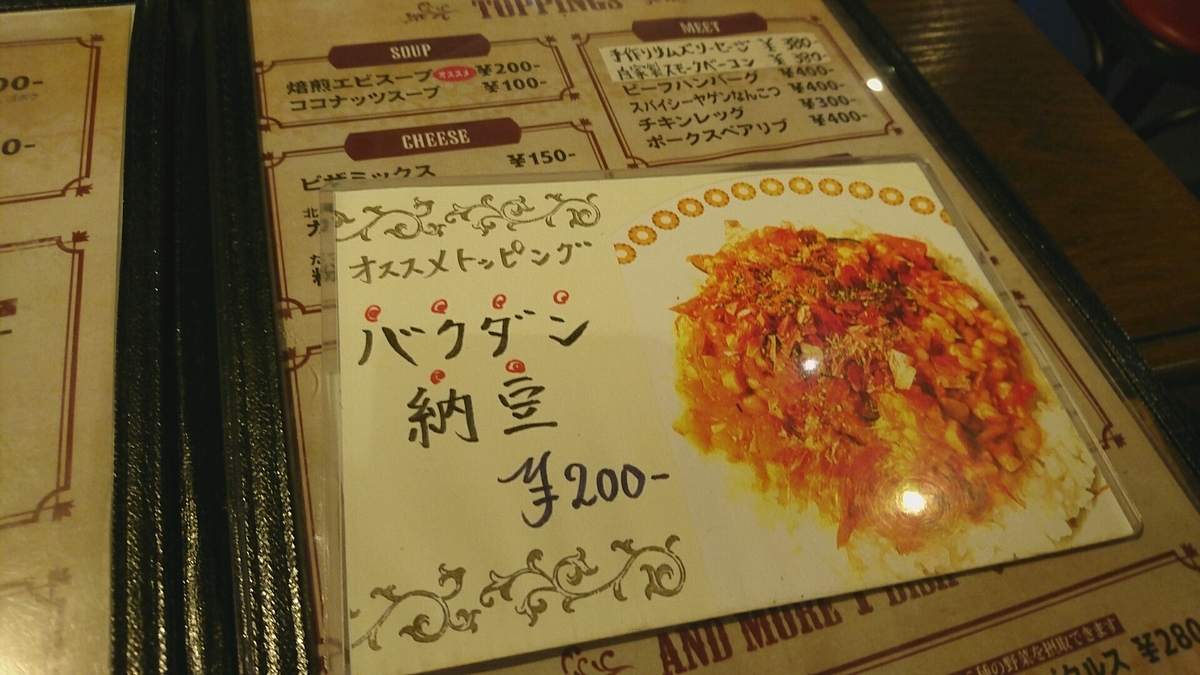 TOPPINGS
SOUP
焙煎エビスープ オススメ ¥200-
ココナッツスープ ¥100-
CHEESE
ピザミックス ¥150-
MEET
手作りリムズソーセージ ¥380-
自家製スモークベーコン ¥380-
ビーフハンバーグ ¥400-
スパイシーヤゲンなんこつ ¥400-
チキンレッグ ¥300-
ポークスペアリブ ¥400-
オススメトッピング
バクダン
納豆
¥200-
AND MORE 1 DISH
種の野菜を摂取できます
クルス ¥280